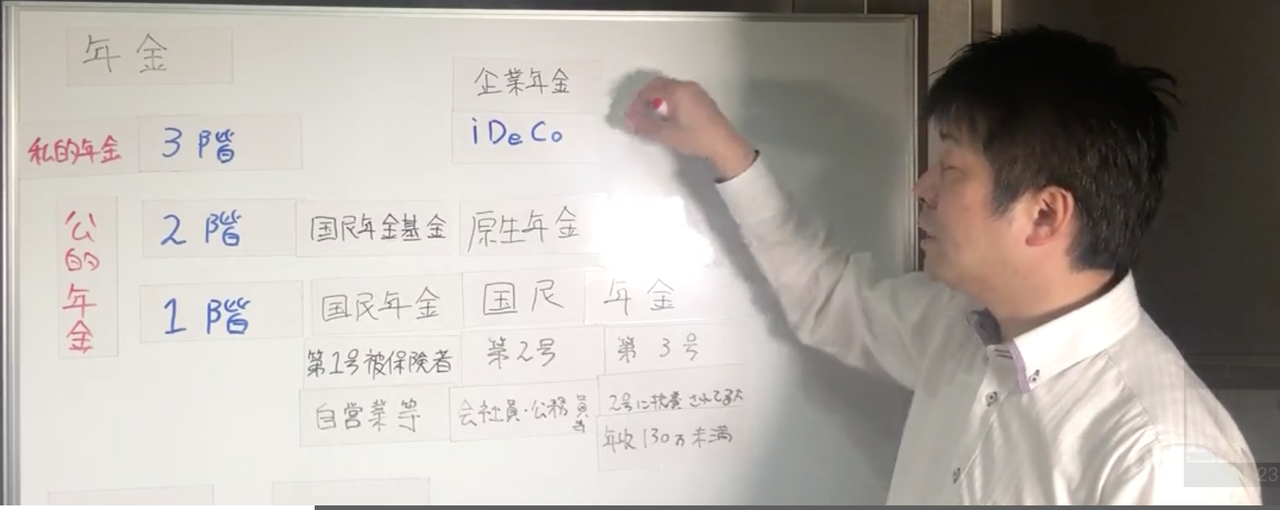 年金
企業年金
私的年金 3階 iDeCo
公的年金
2階 国民年金基金 原生年金
1階 国民年金 国民 年金
第1号被保険者 第2号 第3号
自営業等 会社員・公務員等 2号に扶養されてる
年収130万未満
23